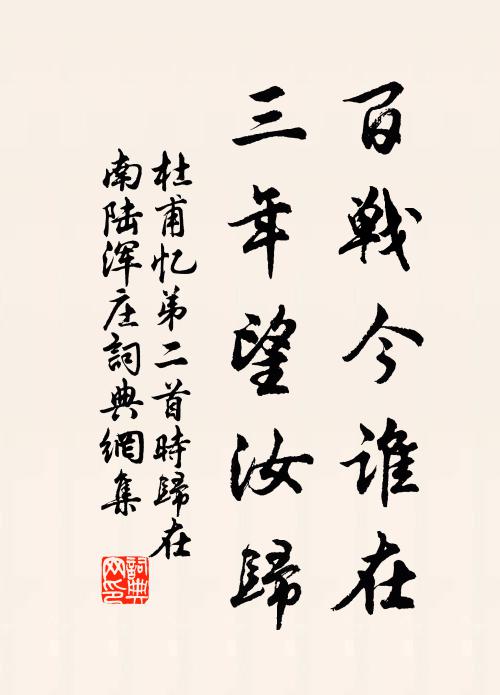 百戦今谁在
三年望汝歸
杜甫忆弟二首時歸在
南陆浑庄詞典網集
詞典
网印